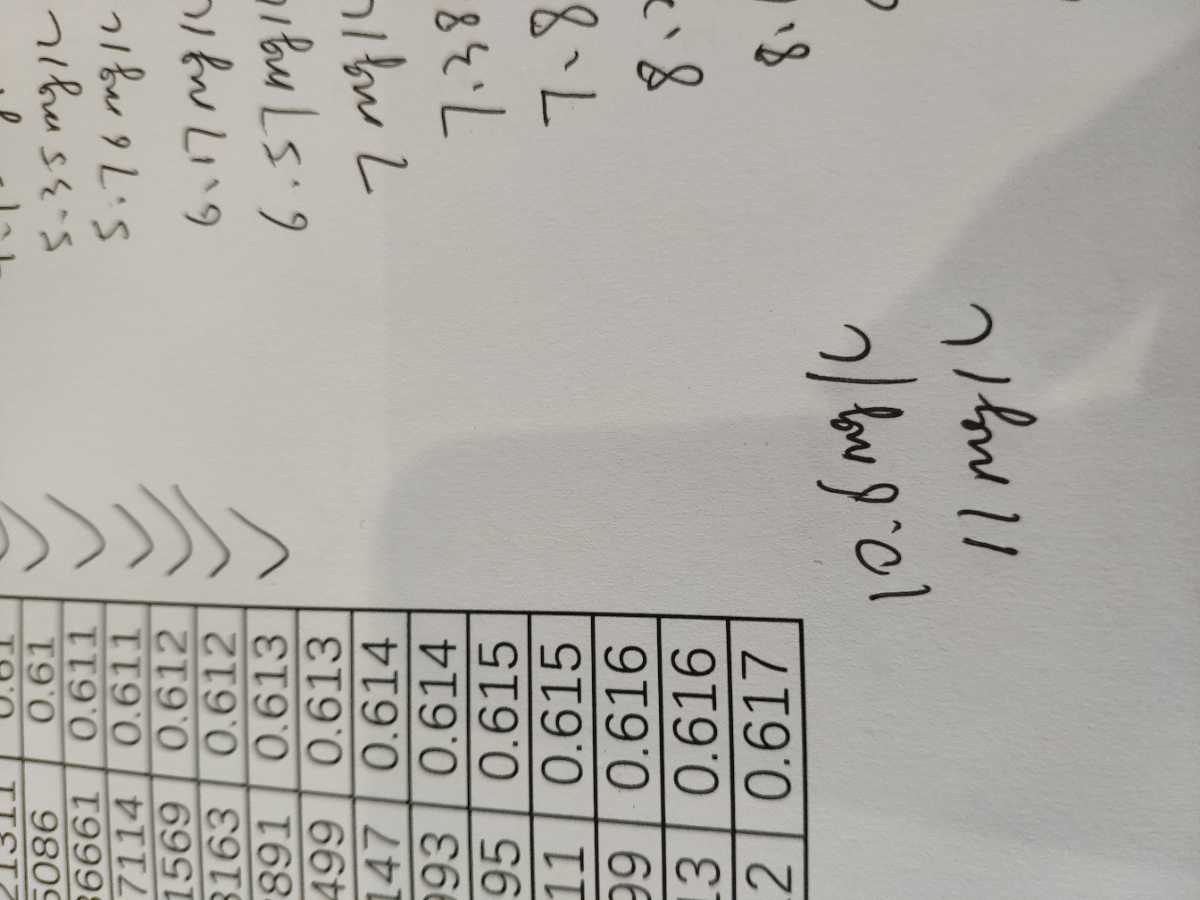 21311 0.61
5086 0.61
36661 0.611
7114 0.611
1569 0.612
3163 0.612
8891 0.613
499 0.613
147 0.614
993 0.614
95 0.615
11 0.615
99 0.616
13 0.616
2 0.617
5.35 mg/L
5.76 mg/L
6.17 mg/L
6.57 mg/L
7 mg/L
7.38
7.8
8.
10.8 mg/L
11 mg/L